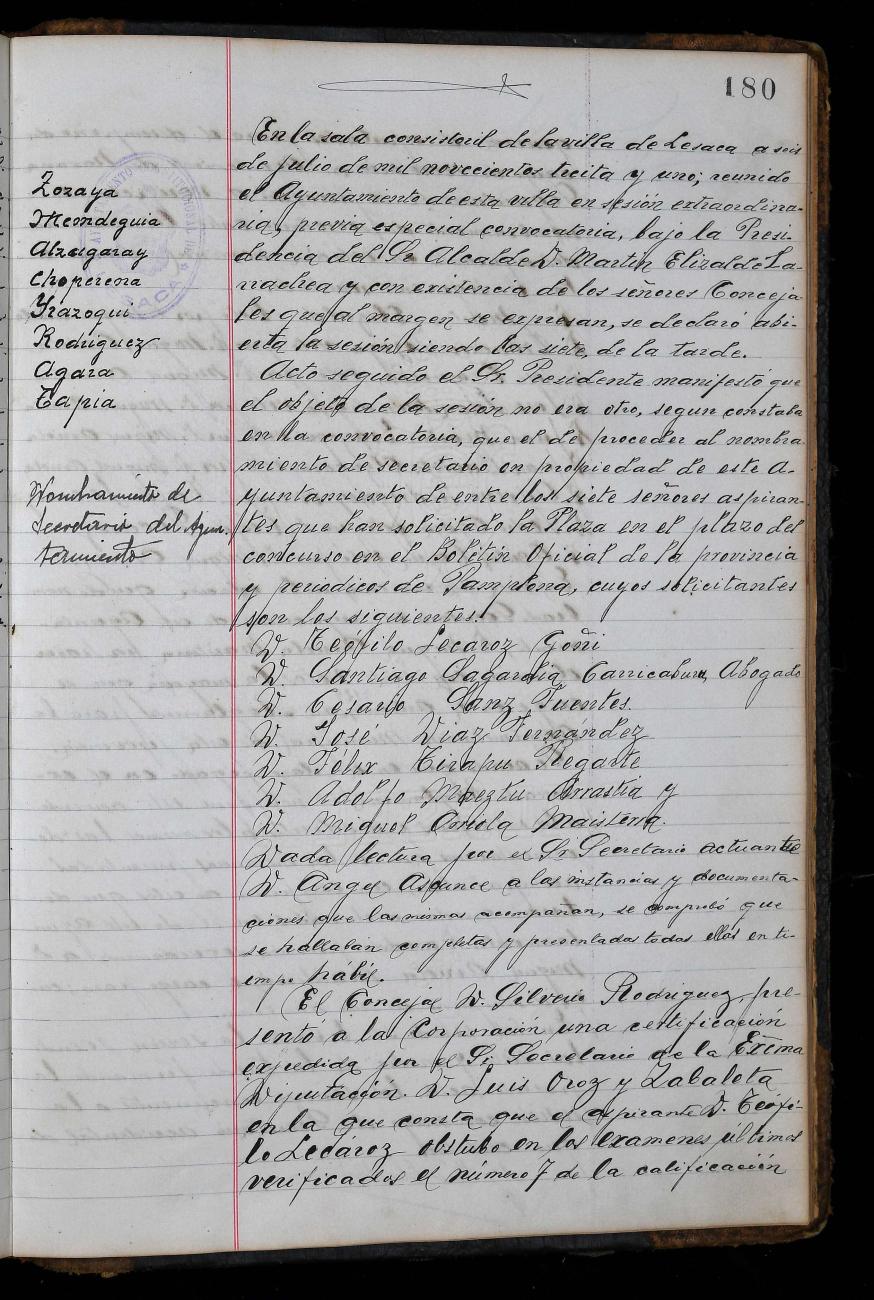 180
Zozaya
Mendeguia
Alzugaray
Choperena
Yrazoqui
Rodriguez
Agara
Tapia
Nombramiento de
Secretario del Ayun-
tamiento
En la sala consistorial de la villa de Lesaca a seis
de julio de mil novecientos treita y uno; reunido
el Ayuntamiento de esta villa en sesión extraordina-
ria, previa especial convocatoria, bajo la Presi-
dencia del Sr Alcalde D. Martin Elizalde La-
rrachea y con existencia de los señores Conceja-
les que al margen se expresan, se declaró abi-
erta la sesión siendo las siete, de la tarde.
Acto seguido el Sr. Presidente manifestó que
el objeto de la sesión no era otro, segun constaba
en la convocatoria, que el de proceder al nombra
miento de secretario en propiedad de este A-
yuntamiento de entre los siete señores aspiran-
tes que han solicitado la Plaza en el plazo del
concurso en el Boletin Oficial de la provincia
y periodicos de Pamplona, cuyos solicitantes
son los siguientes.
D. Teófilo Lecaroz Goñi
D. Santiago Sagardia Carricaburu, Abogado
D. Cesareo Sanz Fuentes.
D. José Diaz Fernández
D. Félix Tirapu Regarte
D. Adolfo Maeztu Arrastia y
D. Miguel Maisterra.
Dada lectura por el Sr Secretario actuante
D. Angel Ascunce a las instancias y documenta-
ciones que las mismas acompañan, se comprobó que
se hallaban completas y presentadas todas ellas en ti-
empo hábil.
El Concejal D. Silverio Rodriguez, pre-
sentó a la Corporación una certificación
expedida por el Sr Secretario de la Excma
Diputación. D. Luis Oroz y Zabaleta
en la que consta que el aspirante D. Teófi-
lo Lecároz obstubo en los exámenes últimos
verificados el número 7 de la calificación